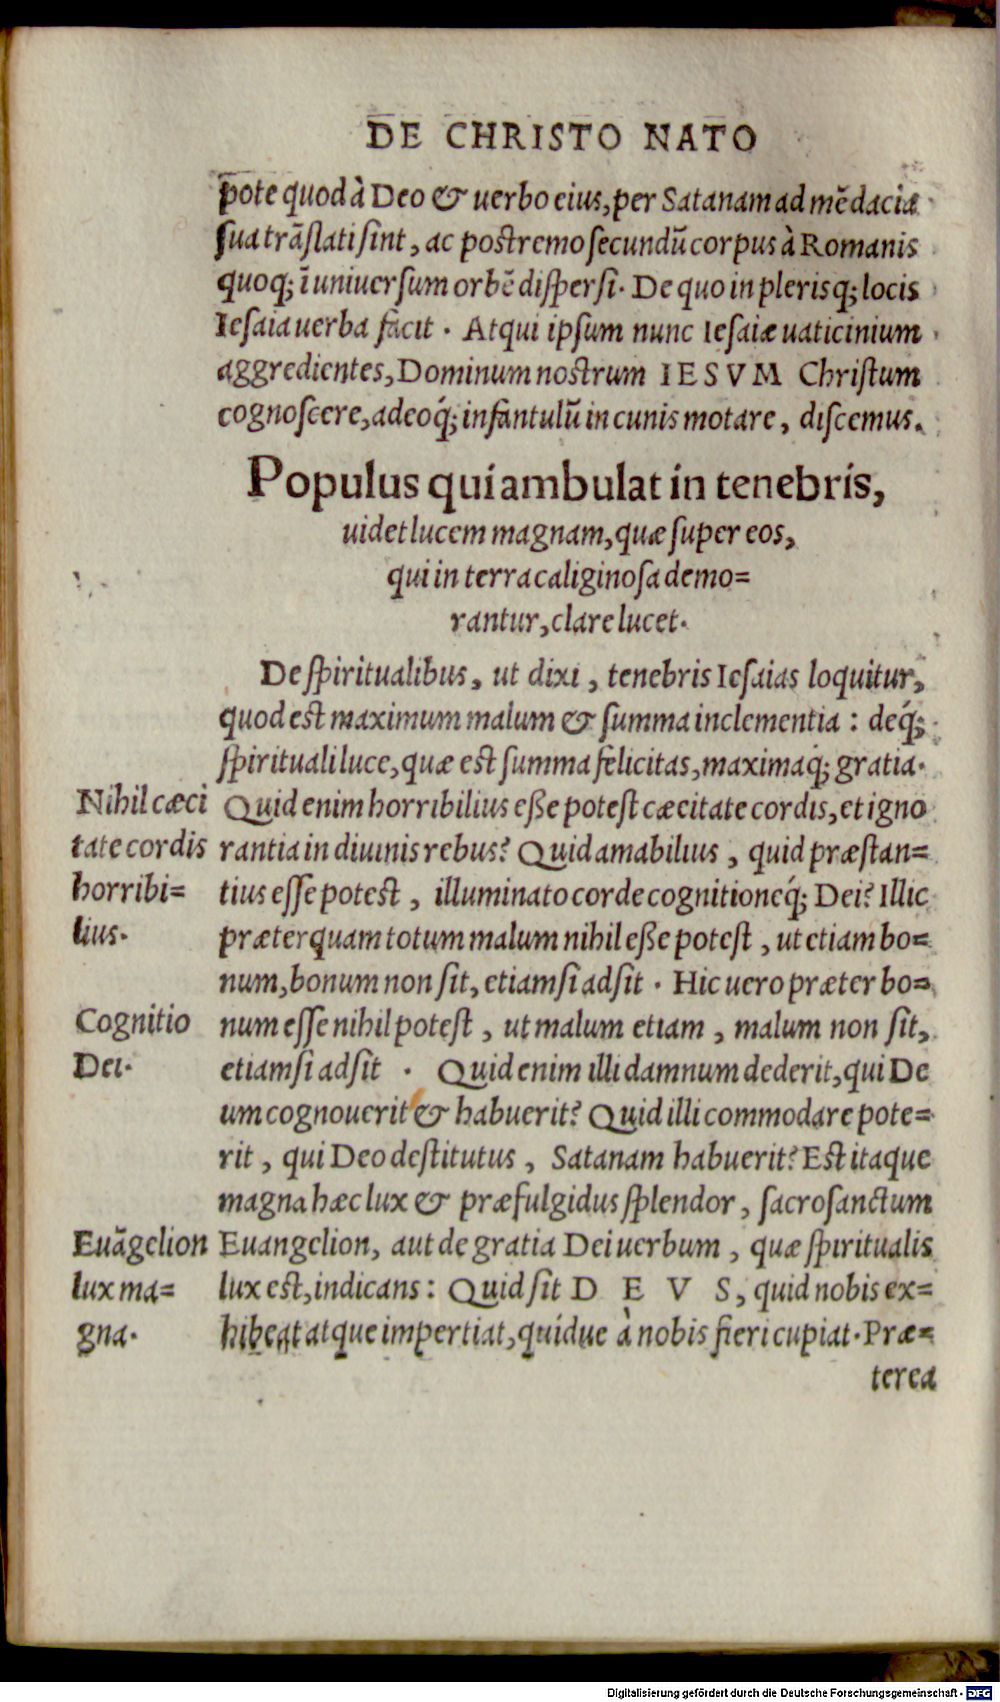 DE CHRISTO NATO
pote quod à Deo & uerbo eius, per Satanam ad mēdacia
sua trāslati sint, ac postremo secundū corpus à Romanis
quoq; ī uniuersum orbē dispersi. De quo in plerisq; locis
Iesaia uerba facit. Atqui ipsum nunc Iesaiæ uaticinium
aggredientes, Dominum nostrum IESVM Christum
cognoscere, adeoq́; infantulū in cunis motare, discemus.
Populus qui ambulat in tenebris,
uidet lucem magnam, quæ super eos,
qui in terra caliginosa demo=
rantur, clare lucet.
De spiritualibus, ut dixi, tenebris Iesaias loquitur,
quod est maximum malum & summa inclementia: deq́;
spirituali luce, quæ est summa felicitas, maximaq́; gratia.
Nihil cæci
tate cordis
horribi=
lius.
Quid enim horribilius eße potest cæcitate cordis, et igno
rantia in diuinis rebus? Quid amabilius, quid præstan=
tius esse potest, illuminato corde cognitioneq́; Dei? Illic
præterquam totum malum nihil eße potest, ut etiam bo=
num, bonum non sit, etiamsi adsit. Hic uero præter bo=
Cognitio
Dei.
num esse nihil potest, ut malum etiam, malum non sit,
etiamsi adsit. Quid enim illi damnum dederit, qui De
um cognouerit & habuerit? Quid illi commodare pote=
rit, qui Deo destitutus, Satanam habuerit? Est itaque
magna hæc lux & præfulgidus splendor, sacrosanctum
Euāgelion
lux ma=
gna.
Euangelion, aut de gratia Dei uerbum, quæ spiritualis
lux est, indicans: Quid sit DEVS, quid nobis ex=
hibeat atque impertiat, quidue à nobis fieri cupiat. Præ=
terea
Digitalisierung gefördert durch die Deutsche Forschungsgemeinschaft - DFG